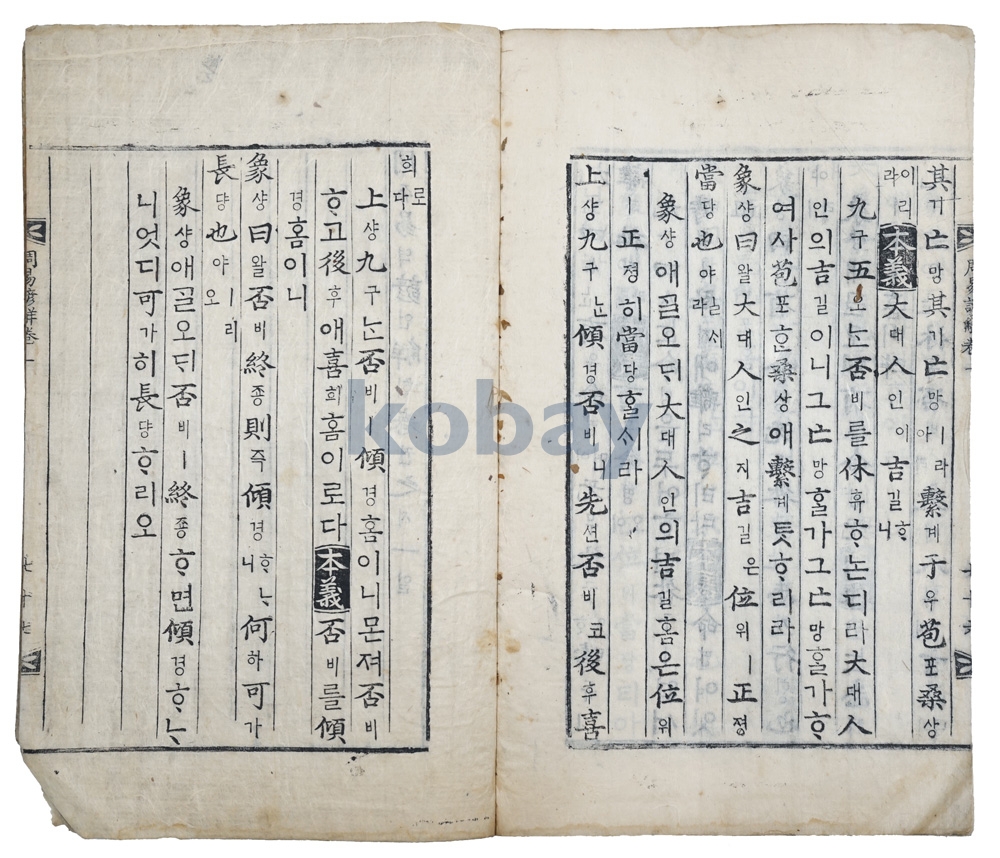 其기亡망其기亡망아ㅣ라繫계于우苞포桑상
이리라本義大대人인이吉길ᄒᆞ니
九구五오ᄂᆞᆫ否비를休휴ᄒᆞ논디라大대人
인의吉길이니그亡망홀가그亡망홀가ᄒᆞ
여사苞포ᄒᆞᆫ桑상애繫계ᄐᆞᆺᄒᆞ리라
象샹曰왈大대人인之지吉길은位위ㅣ正졍
當당也야ᄅᆞᆯ시라
象샹애ᄀᆞᆯ오ᄃᆡ大대人인의吉길홈은位위
ㅣ正졍히當당ᄒᆞᆯ시라
上샹九구ᄂᆞᆫ傾경否비니先션否비코後후喜
희로다
上샹九구ᄂᆞᆫ否비ㅣ傾경홈이니몬져否비
ᄒᆞ고後후애喜희홈이로다本義否비를傾
경홈이니
象샹曰왈否비終죵則즉傾경ᄒᆞᄂᆞ니何하可가
長댱也야ㅣ리오
象샹애ᄀᆞᆯ오ᄃᆡ否비ㅣ終죵ᄒᆞ면傾경ᄒᆞᄂᆞ
니엇디可가히長댱ᄒᆞ리오
周易諺解卷一 七十七
kobay